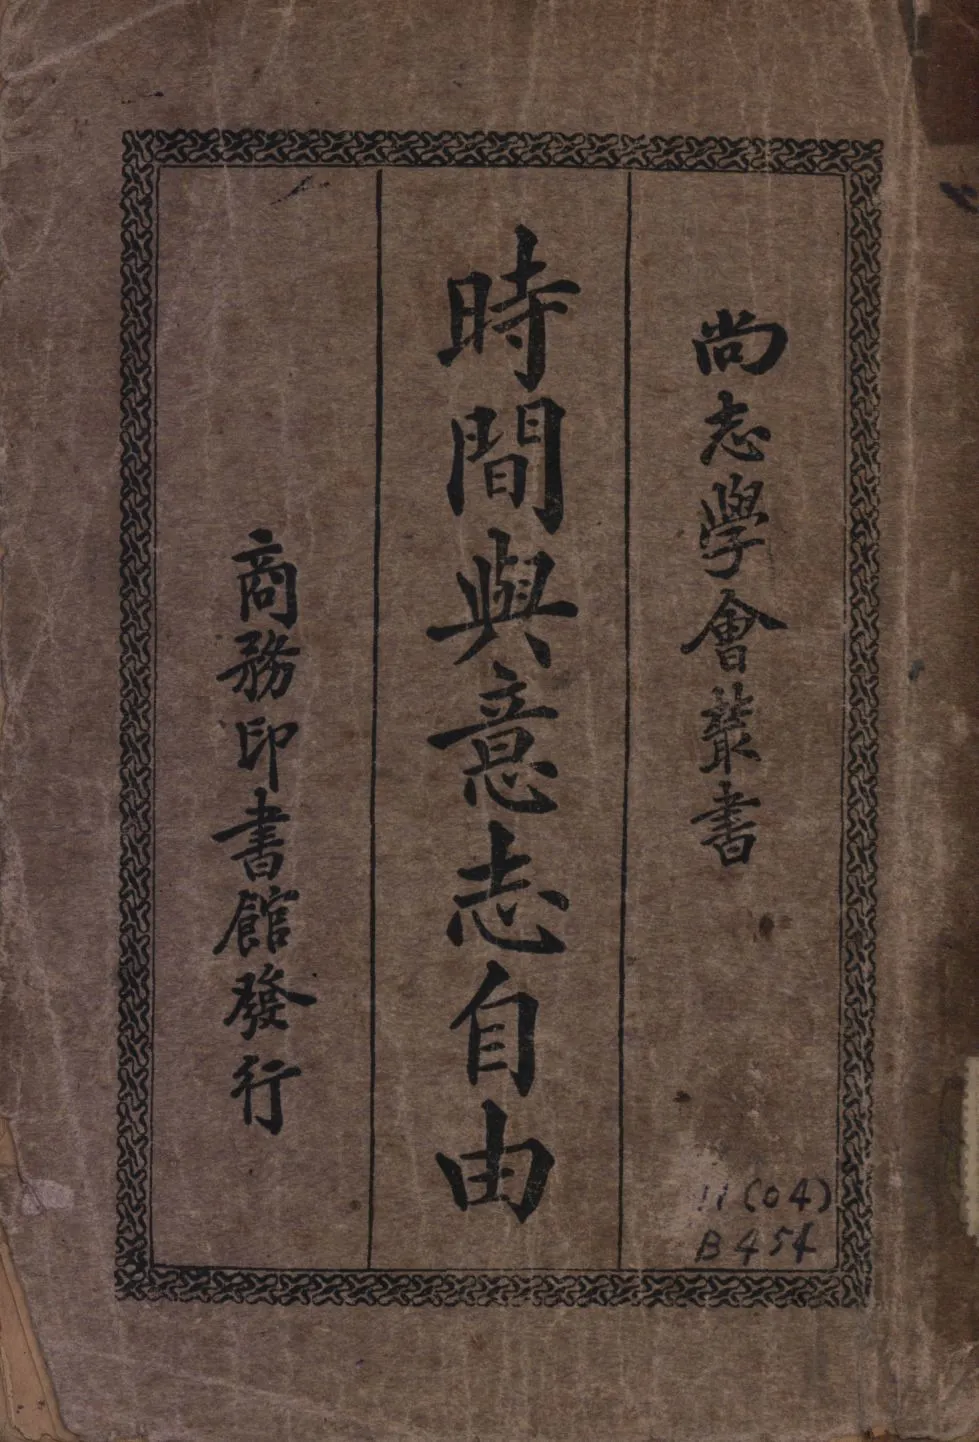 尚志學會叢書
時間與意志自由
商務印書館發行
11(04)
B454